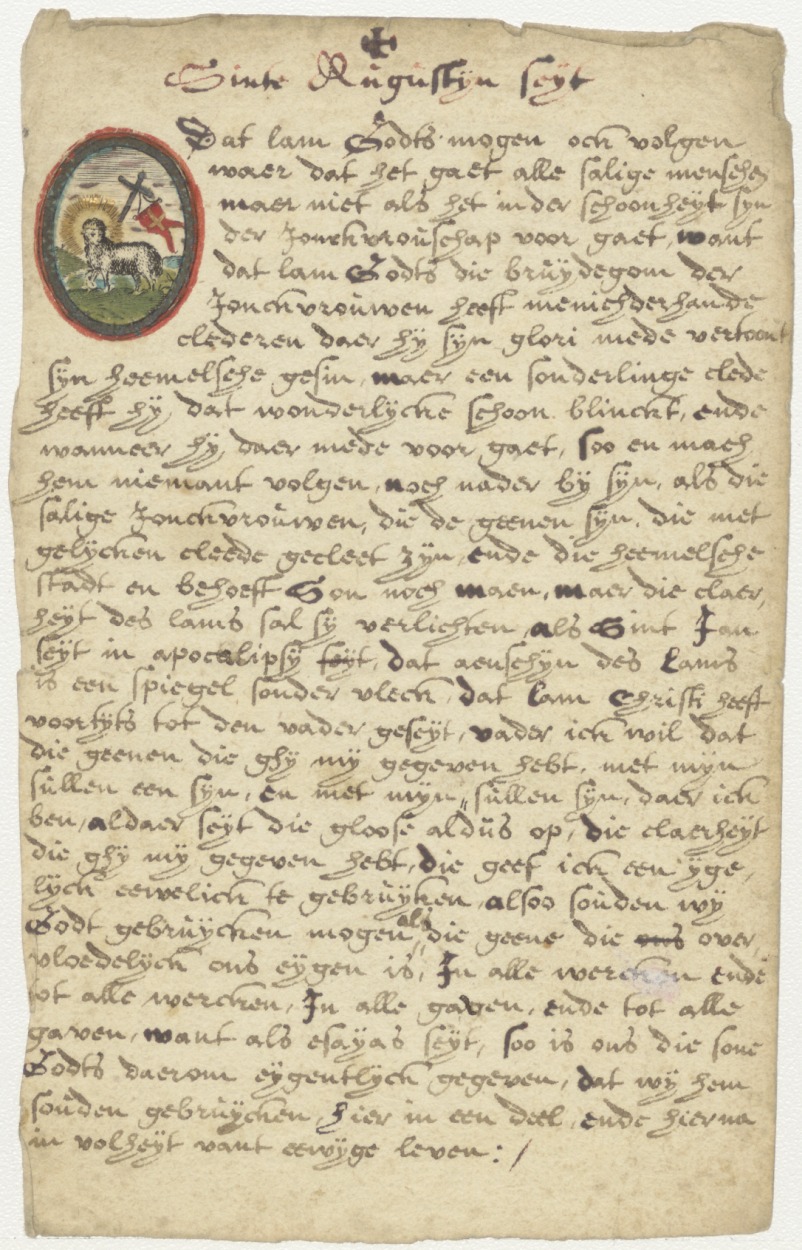 Sinte Augustyn seyt
Dat lam Godts mogen ock volgen
waer dat het gaet alle salige menschen
maer niet als het in der schoonheyt syn
der Jonckvrouschap voor gaet, want
dat lam Godts die bruydegom der
Jonckvrouwen heeft menichderhande
clederen daer hy syn glori mede vertoont
syn heemelsche gesin, maer een sonderlinge clede
heeft hy, dat wonderlycke schoon blinckt, ende
wanneer hy, daer mede voor gaet, soo en mach
hem niemant volgen, noch nader by syn, als die
salige Jonckvrouwen, die de geenen syn, die met
gelycken cleede gecleet zyn, ende die heemelsche
stadt en behoeft Son noch maen, maer die claer,
heyt des lams sal sy verlichten, als Sint Jan
seyt in apocalipsy seyt, dat aenschyn des Lams
is een spiegel sonder vleck, dat lam Christi heeft
voortyts tot den vader geseyt, vader ick wil dat
die geenen die ghy my gegeven hebt, met myn
sullen een syn, en met myn,, sullen syn, daer ick
ben, aldaer seyt die gloose aldus op, die claerheyt
die ghy my gegeven hebt, die geef ick een yge,
lyck eewelick te gebruyken, alsoo souden wy
Godt gebruycken mogen als die geene die ons over,
vloedelyck ons eygen is, In alle wercken ende
tot alle wercken, In alle gaven, ende tot alle
gaven, want als esayas seyt, soo is ons die sone
Godts daerom eygentlyck gegeven, dat wy hem
souden gebruycken, hier in een deel, ende hierna
in volheyt vant eewyge leven: /